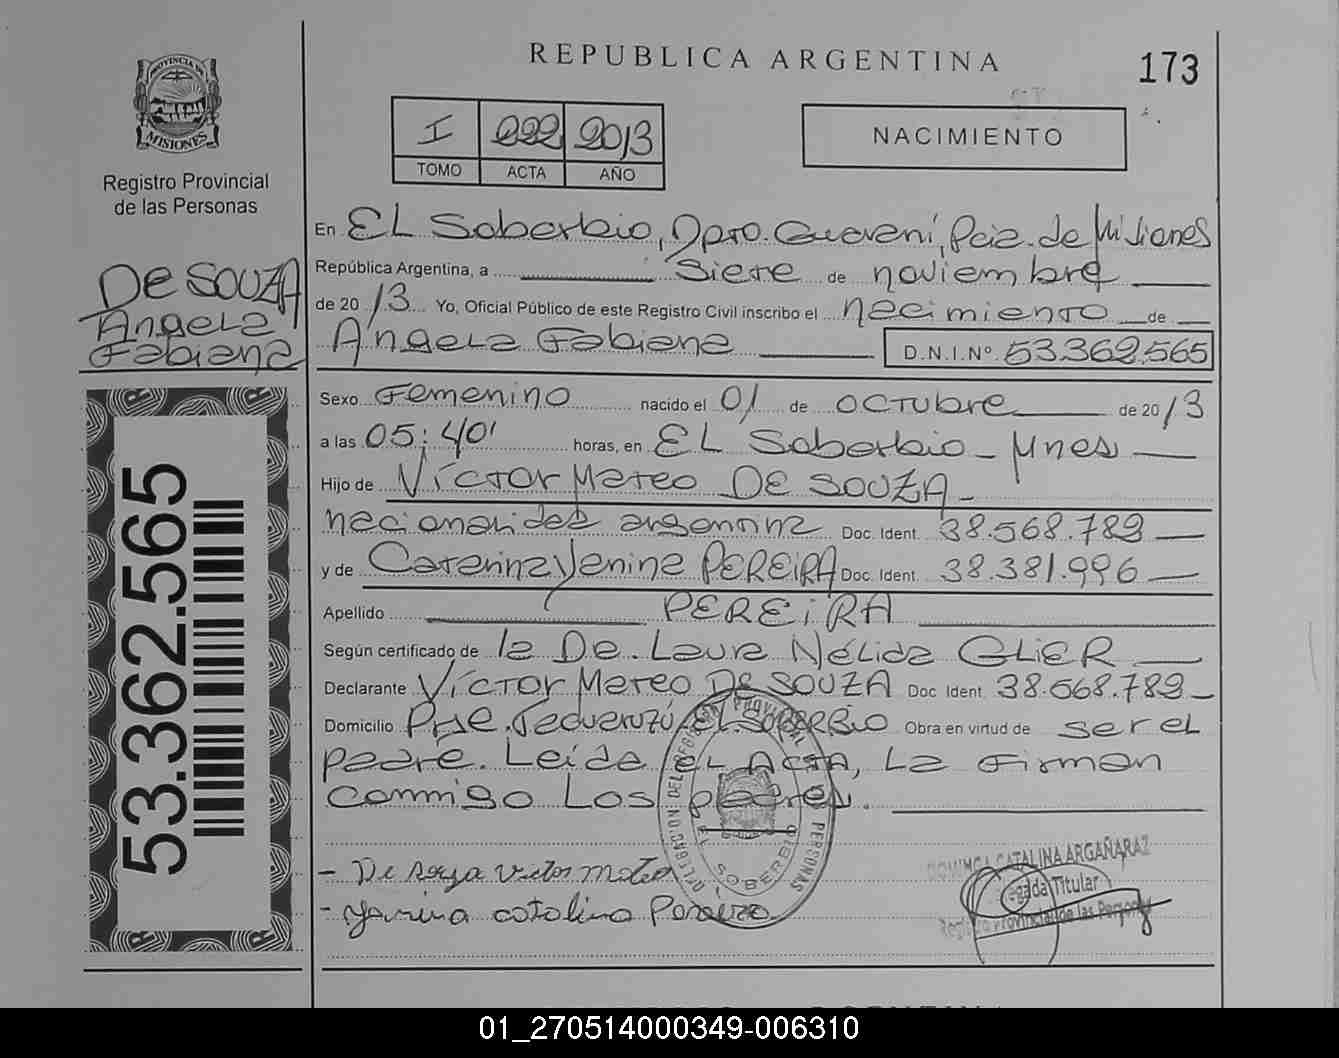 REPUBLICA ARGENTINA
173
PROVINCIA DE
MISIONES
Registro Provincial
de las Personas
I 222 2013
TOMO ACTA AÑO
NACIMIENTO
DE SOUZA
Angela
Fabiana
53.362.565
En EL Soberbio, Dpto. Guaraní, Pcia. de Misiones
República Argentina, a siete de noviembre
de 2013 Yo, Oficial Público de este Registro Civil inscribo el nacimiento de
Angela Fabiana D.N.I.Nº 53.362.565
Sexo Femenino nacido el 01 de octubre de 2013
a las 05:40' horas, en EL Soberbio - Mnes
Hijo de Víctor Mateo DE SOUZA
nacionalidad argentina Doc. Ident. 38.568.789
y de Catarina Yanina PEREIRA Doc. Ident. 38.381.996
Apellido PEREiRA
Según certificado de la De. Laura Nélida GLIER
Declarante Víctor Mateo DE SOUZA Doc Ident. 38.568.789
Domicilio EL SOBERBiO Obra en virtud de ser el
padre. Leída el Acta, La firman
conmigo Los padres.
DELEGACION DEL REGISTRO PROVINCIAL DE LAS PERSONAS
EL SOBERBIO
- De Souza Victor Mateo
- Yanina catalina Pereira
CATALINA ARGAÑARAZ
Delegada Titular
Registro Provincial de las Personas
01_270514000349-006310